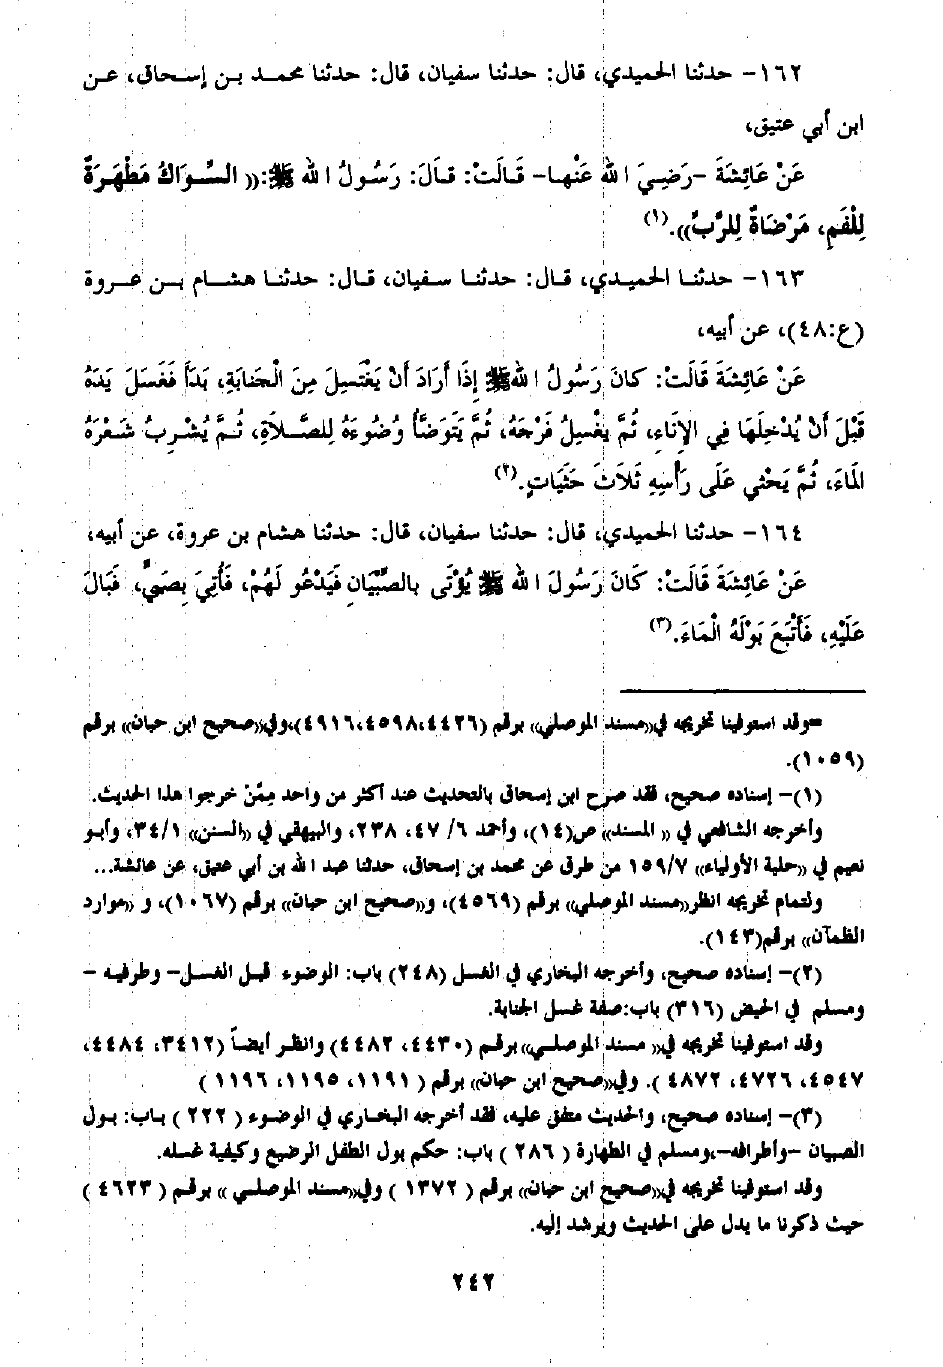 ١٦٢- حدثنا الحميدي، قال: حدثنا سفيان، قال: حدثنا محمد بن إسحاق، عن
ابن أبي عتيق،
عَنْ عَائِشَةَ -رَضِيَ اللهُ عَنْهَا- قَالَتْ: قَالَ: رَسُولُ اللهِ ﷺ:(( السِّوَاكُ مَطْهَرَةٌ
لِلْفَمِ، مَرْضَاةٌ لِلرَّبِّ)).(١)
١٦٣- حدثنا الحميدي، قال: حدثنا سفيان، قال: حدثنا هشام بن عروة
(ع:٤٨)، عن أبيه،
عَنْ عَائِشَةَ قَالَتْ: كَانَ رَسُولُ اللهِ ﷺ إِذَا أَرَادَ أَنْ يَغْتَسِلَ مِنَ الْجَنَابَةِ، بَدَأَ فَغَسَلَ يَدَهُ
قَبْلَ أَنْ يُدْخِلَهَا فِي الإِنَاءِ، ثُمَّ يَغْسِلُ فَرْجَهُ، ثُمَّ يَتَوَضَّأُ وُضُوءَهُ لِلصَّلاَةِ، ثُمَّ يُشْرِبُ شَعْرَهُ
الْمَاءَ، ثُمَّ يَحْثِي عَلَى رَأْسِهِ ثَلاَثَ حَثَيَاتٍ.(٢)
١٦٤- حدثنا الحميدي، قال: حدثنا سفيان، قال: حدثنا هشام بن عروة، عن أبيه،
عَنْ عَائِشَةَ قَالَتْ: كَانَ رَسُولَ اللهِ ﷺ يُؤْتَى بالصِّبْيَانِ فَيَدْعُو لَهُمْ، فَأُتِيَ بِصَبِيٍّ، فَبَالَ
عَلَيْهِ، فَأَتْبَعَ بَوْلَهُ الْمَاءَ.(٣)
=وقد استوفينا تخريجه في((مسند الموصلي)) برقم (٤٤٢٦،٤٥٩٨،٤٩١٦)،وفي((صحيح ابن حبان)) برقم
(١٠٥٩).
(١)- إسناده صحيح، فقد صرح ابن إسحاق بالتحديث عند أكثر من واحد مِمَّنْ خرجوا هذا الحديث.
وأخرجه الشافعي في (( المسند)) ص(١٤)، وأحمد ٦/ ٤٧، ٢٣٨، والبيهقي في ((السنن)) ٣٤/١، وأبو
نعيم في ((حلية الأولياء)) ١٥٩/٧ من طرق عن محمد بن إسحاق، حدثنا عبد الله بن أبي عتيق، عن عائشة...
ولتمام تخريجه انظر((مسند الموصلي)) برقم (٤٥٦٩)، و((صحيح ابن حبان)) برقم (١٠٦٧)، و ((موارد
الظمآن)) برقم(١٤٣).
(٢)- إسناده صحيح، وأخرجه البخاري في الغسل (٢٤٨) باب: الوضوء قبل الغسل- وطرفيه -
ومسلم في الحيض (٣١٦) باب:صفة غسل الجنابة.
وقد استوفينا تخريجه في(( مسند الموصلي))برقم (٤٤٣٠، ٤٤٨٢) وانظر أيضاً (٣٤١٢، ٤٤٨٤،
٤٥٤٧، ٤٧٢٦، ٤٨٧٢ ). وفي((صحيح ابن حبان)) برقم ( ١١٩١، ١١٩٥، ١١٩٦ )
(٣)- إسناده صحيح، والحديث متفق عليه، فقد أخرجه البخاري في الوضوء ( ٢٢٢ ) باب: بول
الصبيان -وأطرافه-،ومسلم في الطهارة ( ٢٨٦ ) باب: حكم بول الطفل الرضيع وكيفية غسله.
وقد استوفينا تخريجه في((صحيح ابن حبان)) برقم ( ١٣٧٢ ) وفي((مسند الموصلي )) برقم ( ٤٦٢٣ )
حيث ذكرنا ما يدل على الحديث ويرشد إليه.
٢٤٢